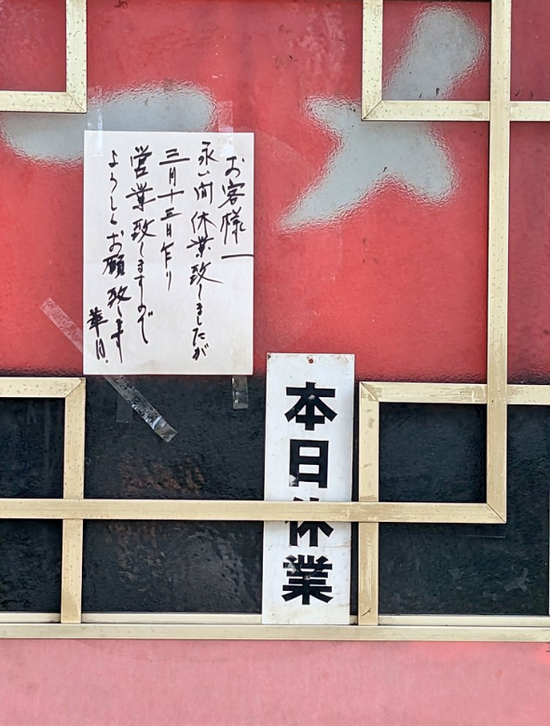 お客様
永い間休業致しましたが
三月十三日乍り
営業致しますので
よろしくお願致します
華月.
本日休業